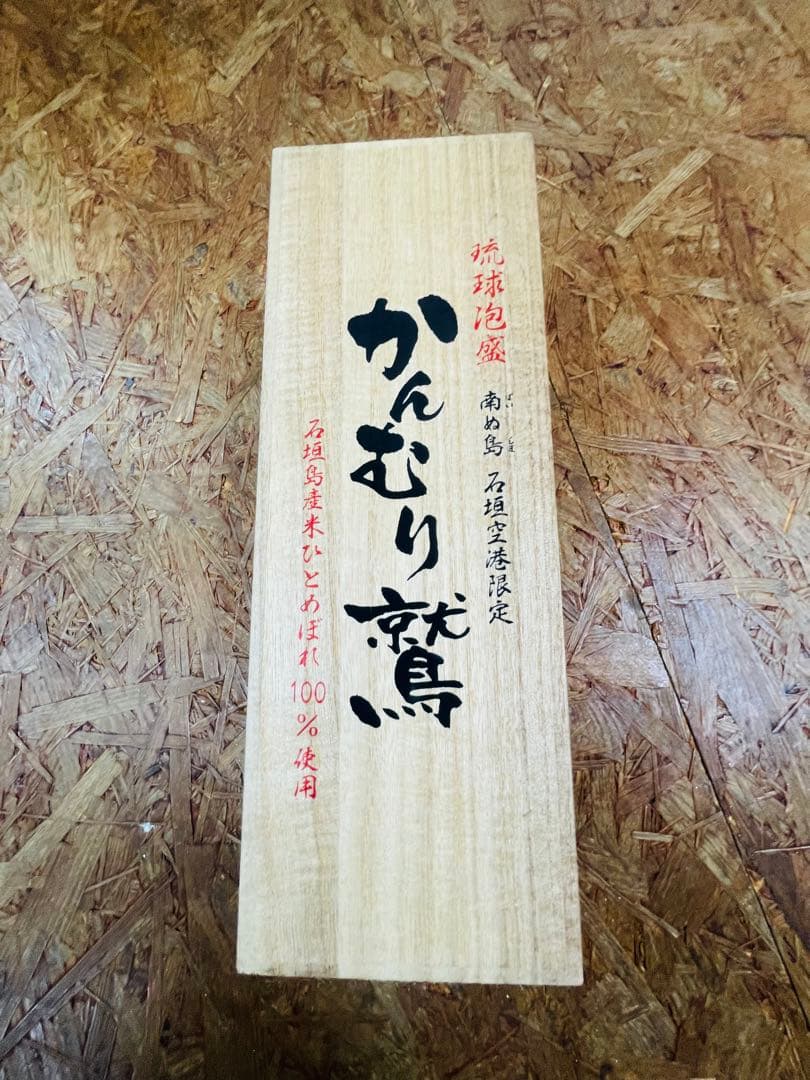 琉球泡盛
南ぬ島 石垣空港限定
ぱいしま
かんむり鷲
石垣島産米ひとめぼれ100%使用